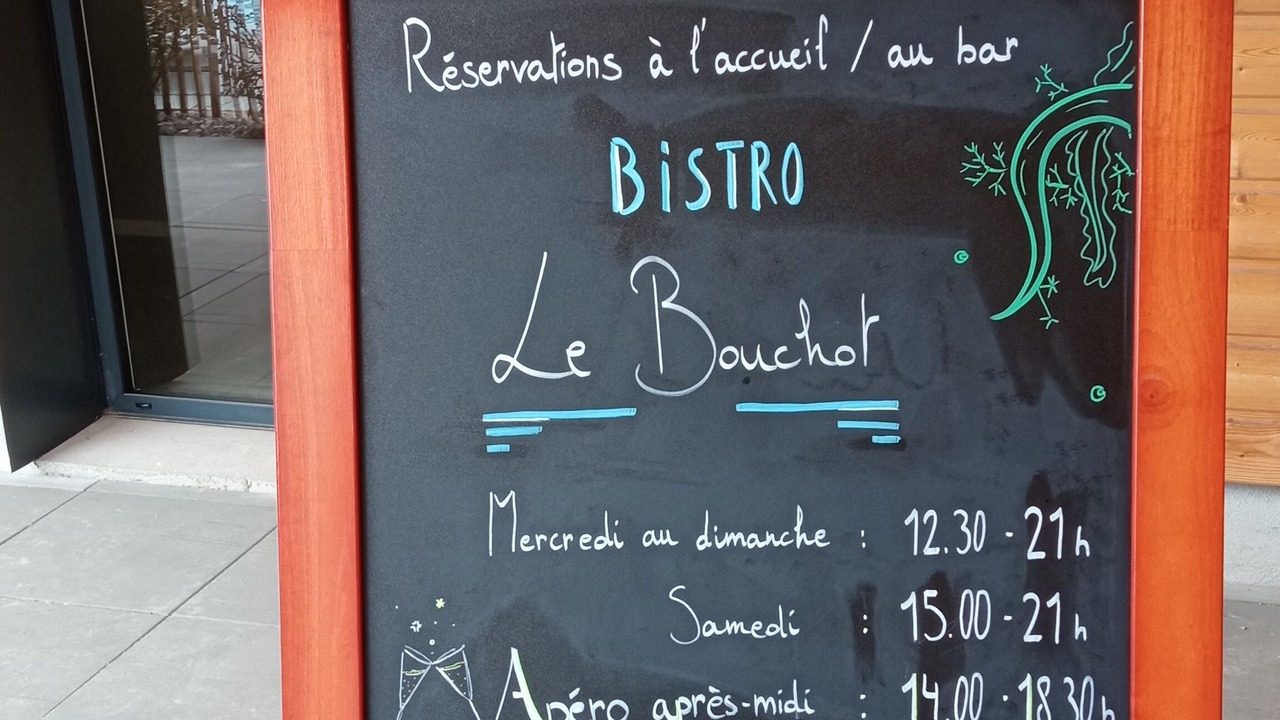 Réservations à l'accueil / au bar
BiSTRO
Le Bouchot
Mercredi au dimanche : 12.30 - 21h
Samedi : 15.00 - 21h
Apéro après-midi : 14.00 - 18.30h